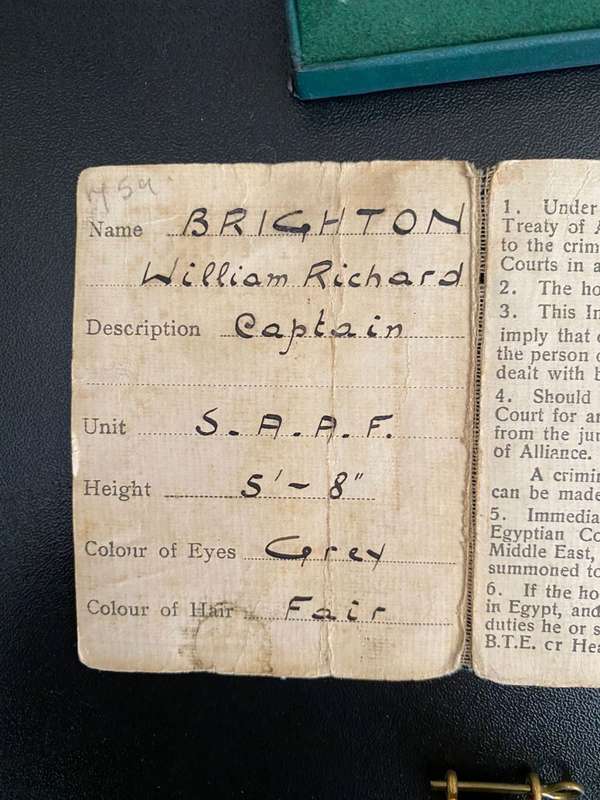 Name BRIGHTON
William Richard
Description Captain
Unit S.A.A.F.
Height 5'-8"
Colour of Eyes Grey
Colour of Hair Fair
1. Under
Treaty of
to the crim
Courts in a
2. The ho
3. This In
imply that
the person
dealt with b
4. Should
Court for an
from the jur
of Alliance.
A crimin
can be made
5. Immedia
Egyptian Co
Middle East,
summoned to
6. If the ho
in Egypt, and
duties he or s
B.T.E. cr Hea